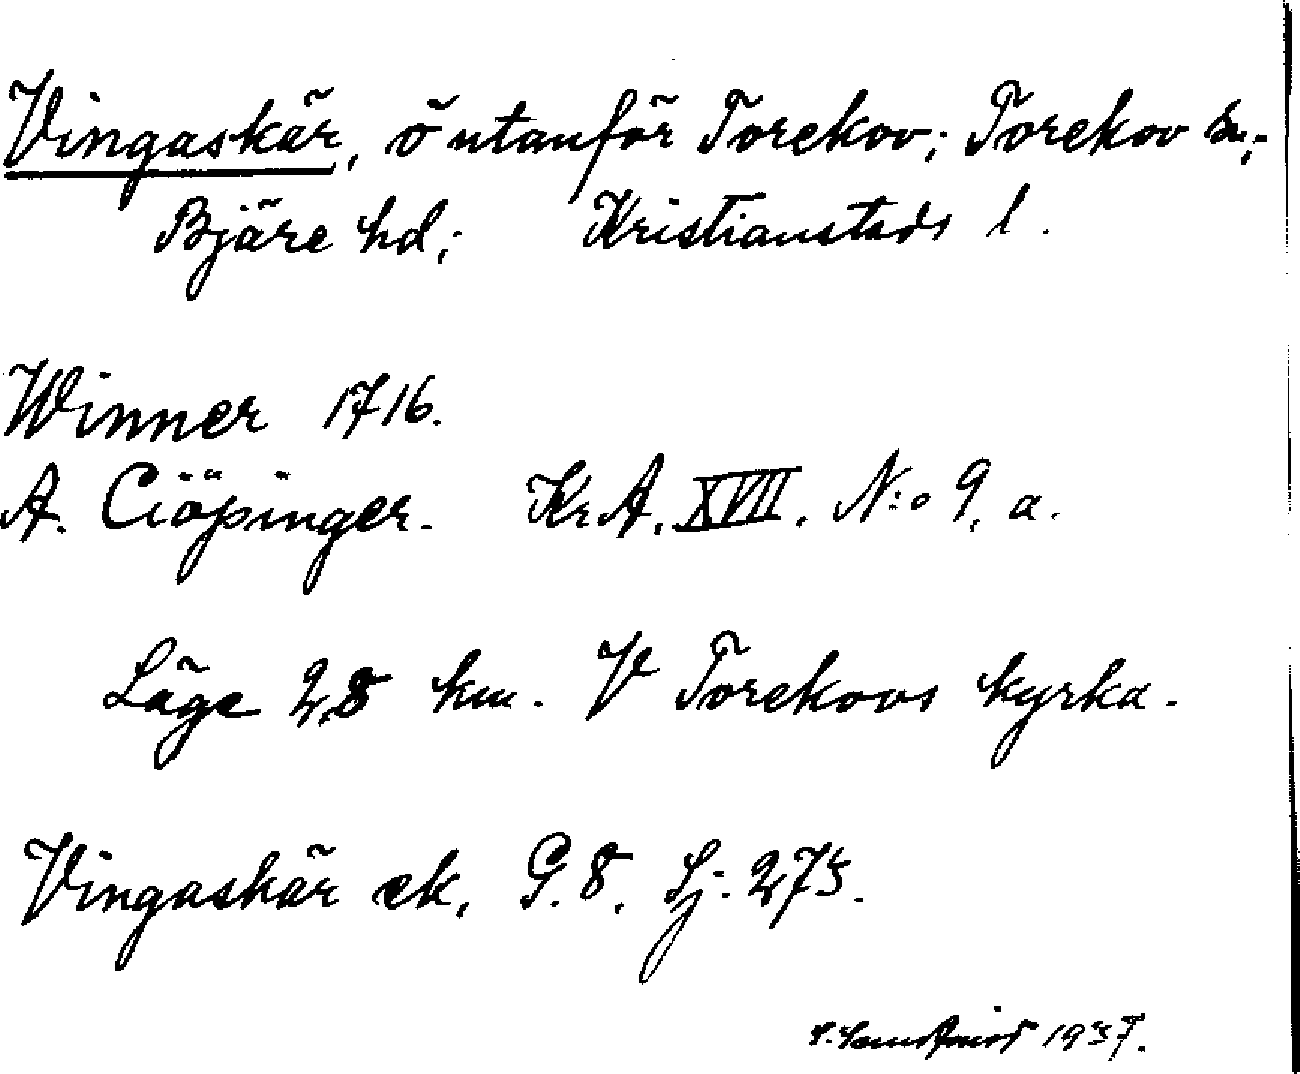 Vingaskär, ö utanför Torekov; Torekov sn;
Bjäre hd; Kristianstads l.
Winner 1716.
A. Ciöpinger. Kr A. XVII. N:o 9, a.
Läge 2,8 km. V Torekovs kyrka.
Vingaskär ek. G. 8. Lj. 275.
1937.